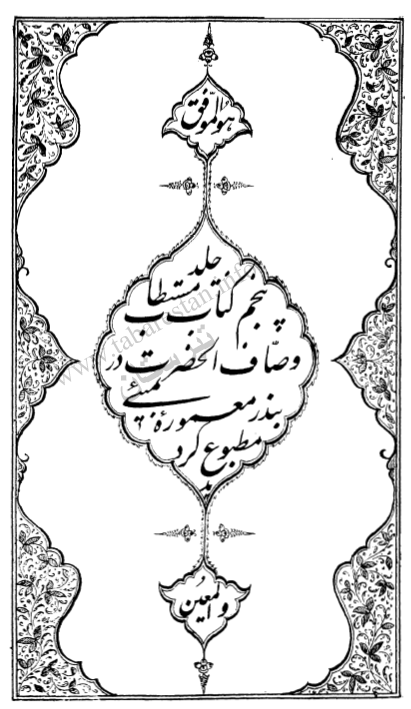 هو الموفق
جلد
پنجم کتاب مستطاب
وصّاف الحضرت در
بندر معمورۀ بمبئی
مطبوع کرد
ید
و المعین
www.tabarestan.info
تبرستان